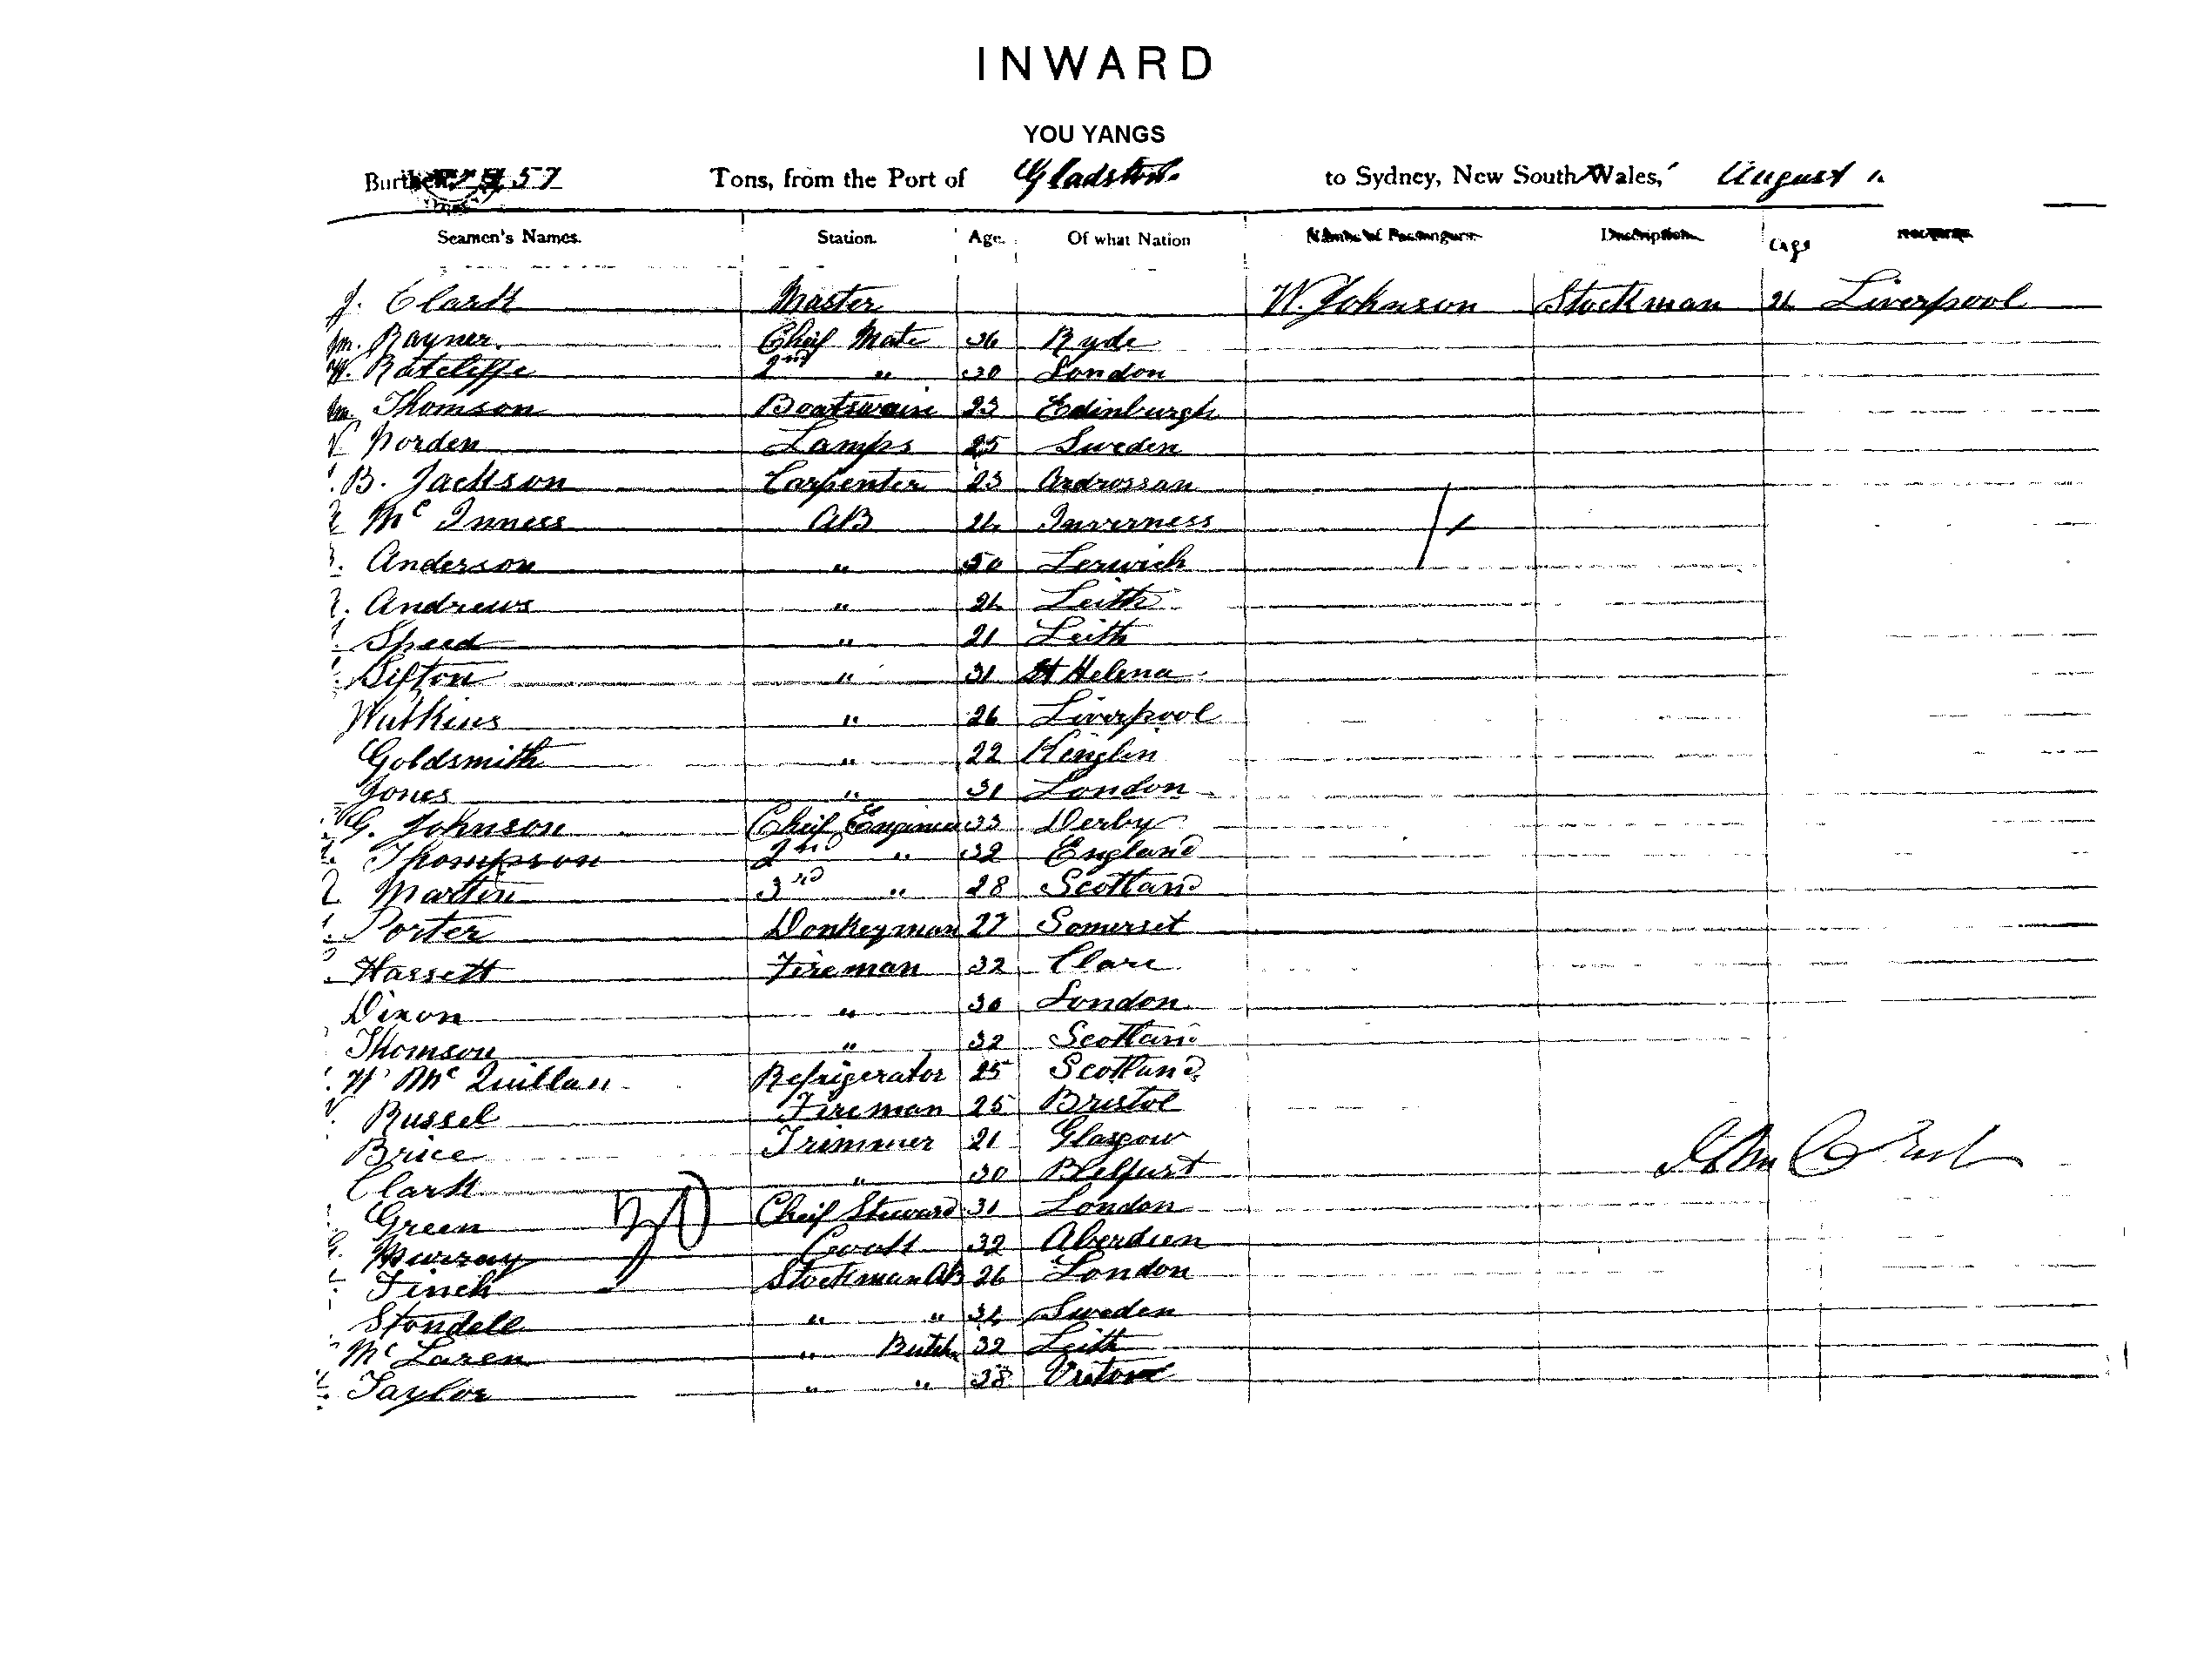 INWARD
YOU YANGS
Burthen 57 Tons, from the Port of Gladstone to Sydney, New South Wales, August 1
Seamen's Names. Station. Age. Of what Nation Names of Passengers. Description. Age
J. Clark Master W. Johnson Stockman Liverpool
Rayner Cheif Mate 36 Ryde
W. Ratcliffe 2nd " 30 London
Thomson Boatswain 23 Edinburgh
Norden Lamps 25 Sweden
B. Jackson Carpenter 23 Ardrossan
Mc Inness AB Inverness
Anderson " 50 Lerwick
Andrews " Leith
Speed " 21 Leith
Sifton " 31 St Helena
Watkins " 26 Liverpool
Goldsmith " 22
Jones " 31 London
G. Johnson Cheif Engineer 33 Derby
Thompson 2nd " 32 England
Martin 3rd " 28 Scotland
Porter Donkeyman 27 Somerset
Hassett Fireman 32 Clare
Dixon " 30 London
Thomson " 32 Scotland
Mc Quillan Refrigerator 25 Scotland
Russel Fireman 25 Bristol
Brice Trimmer 21 Glasgow
Clark " 30 Blelfast
Green Cheif Steward 31 London
Murray Cook 32 Aberdeen
Finch Stockman AB 26 London
Stondell " " Sweden
Mc Laren " Butch 32 Leith
Taylor " " 38